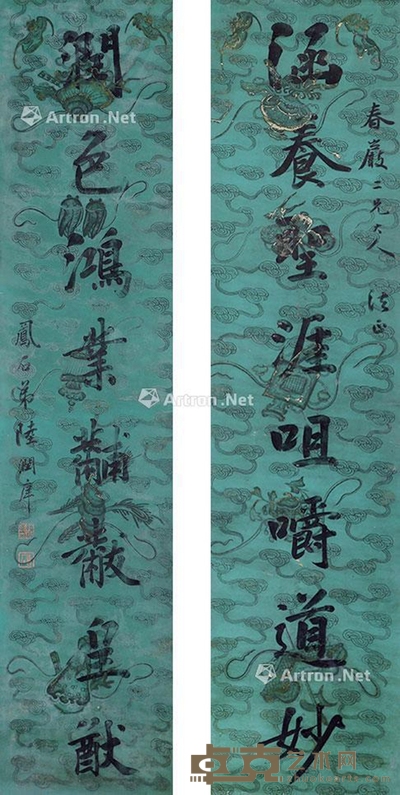 涵養聖涯咀嚼道妙
春巖二兄大人 法正
潤色鴻業黼黻皇猷
鳳石弟陸潤庠
Artron.Net
Artron.Net
Artron.Net
Artron.Net